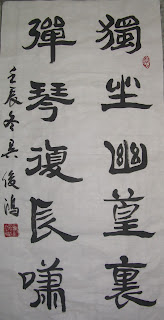 獨坐幽篁裏
彈琴復長嘯
壬辰冬吳俊鴻